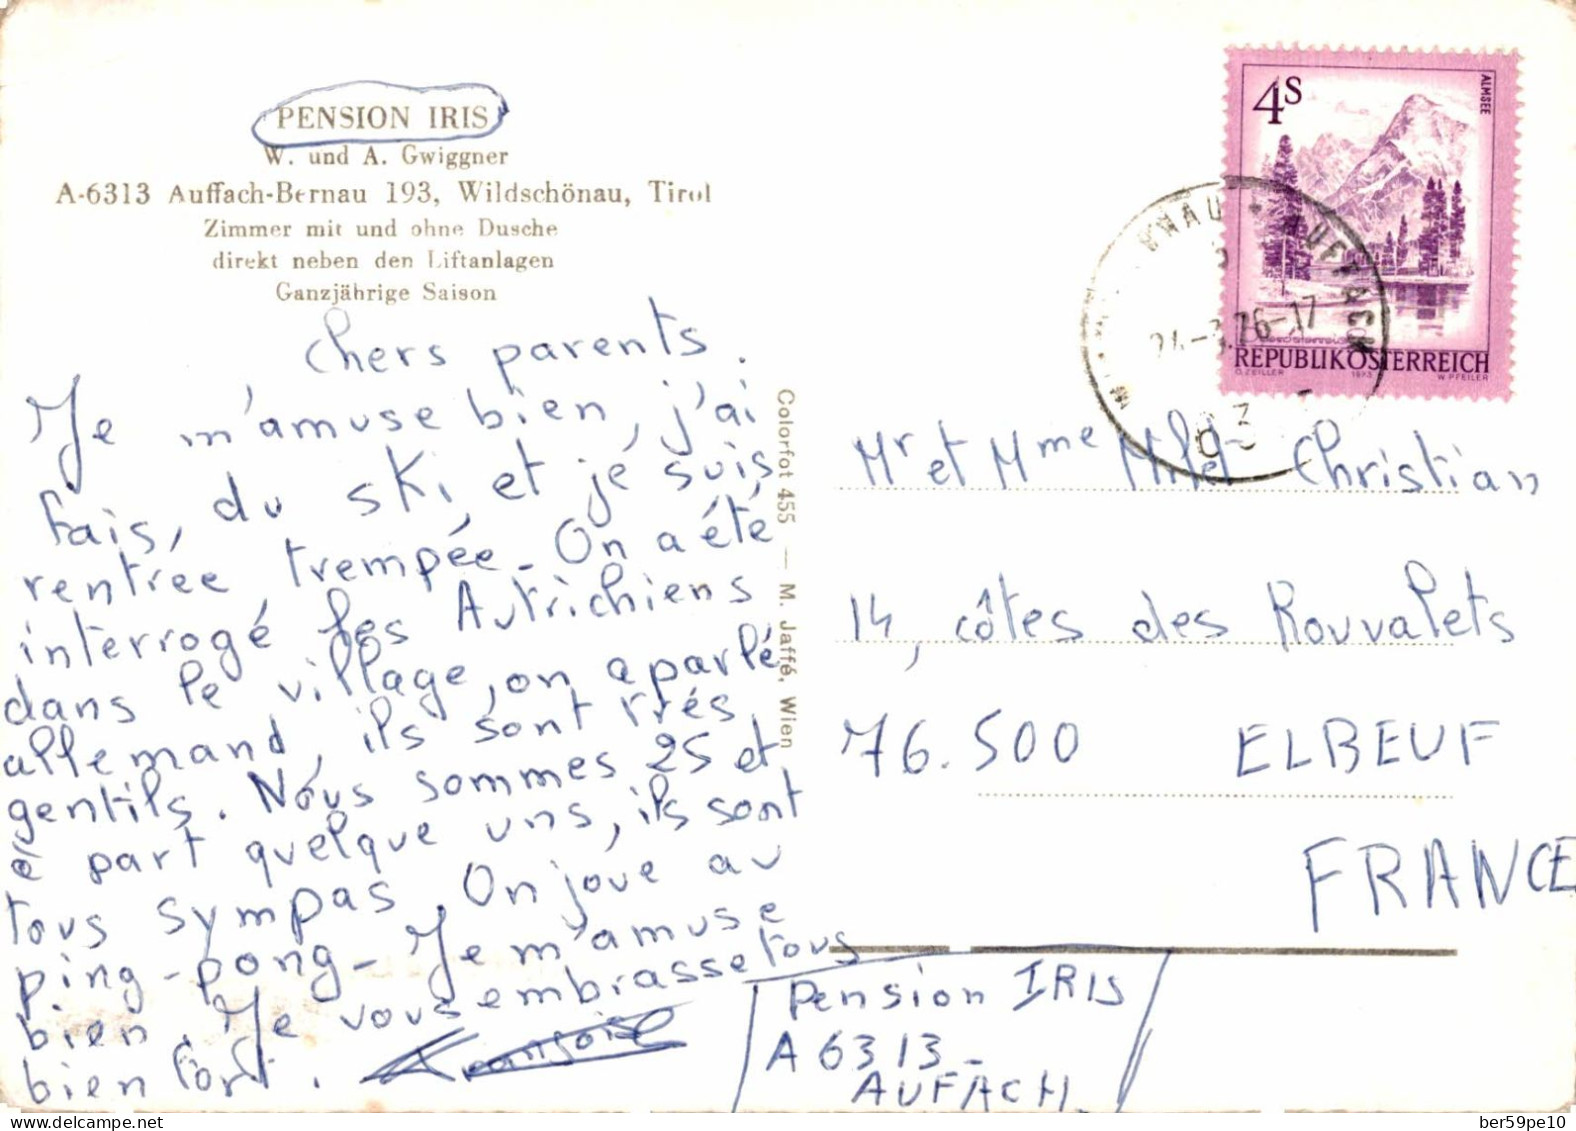 PENSION IRIS
W. und A. Gwiggner
A-6313 Auffach-Bernau 193, Wildschönau, Tirol
Zimmer mit und ohne Dusche
direkt neben den Liftanlagen
Ganzjährige Saison
Chers parents.
Je m'amuse bien, j'ai
fais, du ski, et je suis
rentrée, trempée. On a été
interrogé les Autrichiens
dans le village, on a parlé
allemand, ils sont très
gentils. Nous sommes 25 et
à part quelque uns, ils sont
tous sympas. On joue au
ping-pong - Je m'amuse
bien. Je vous embrasse tous
bien fort.
Françoise
Colorfot 455 — M. Jaffé, Wien
4S
ALMSEE
REPUBLIK ÖSTERREICH
O. ZEILLER 1973 W. PFEILER
AUFFACH
Mr et Mme Christian
14, côtes des Rouvalets
76.500 ELBEUF
FRANCE
Pension IRIS
A 6313 -
AUFACH
ber59pe10